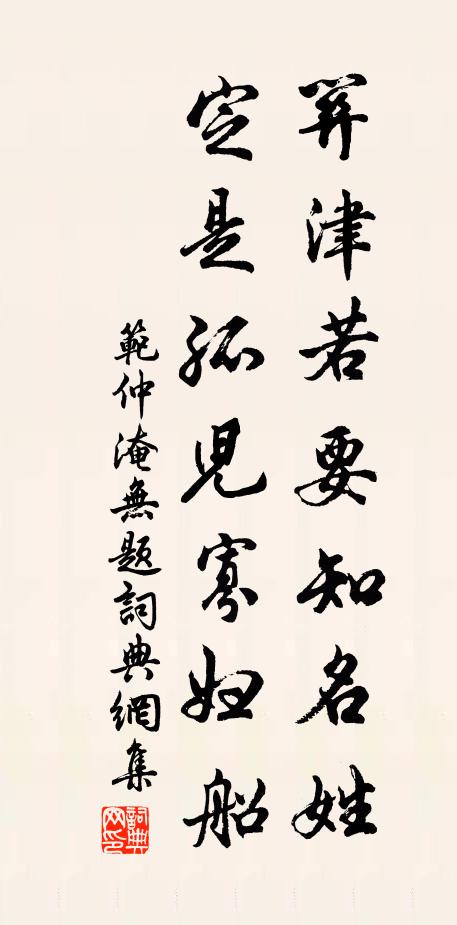 關津若要知名姓
定是孤兒寡婦船
範仲淹無題詞典網集
詞典网印